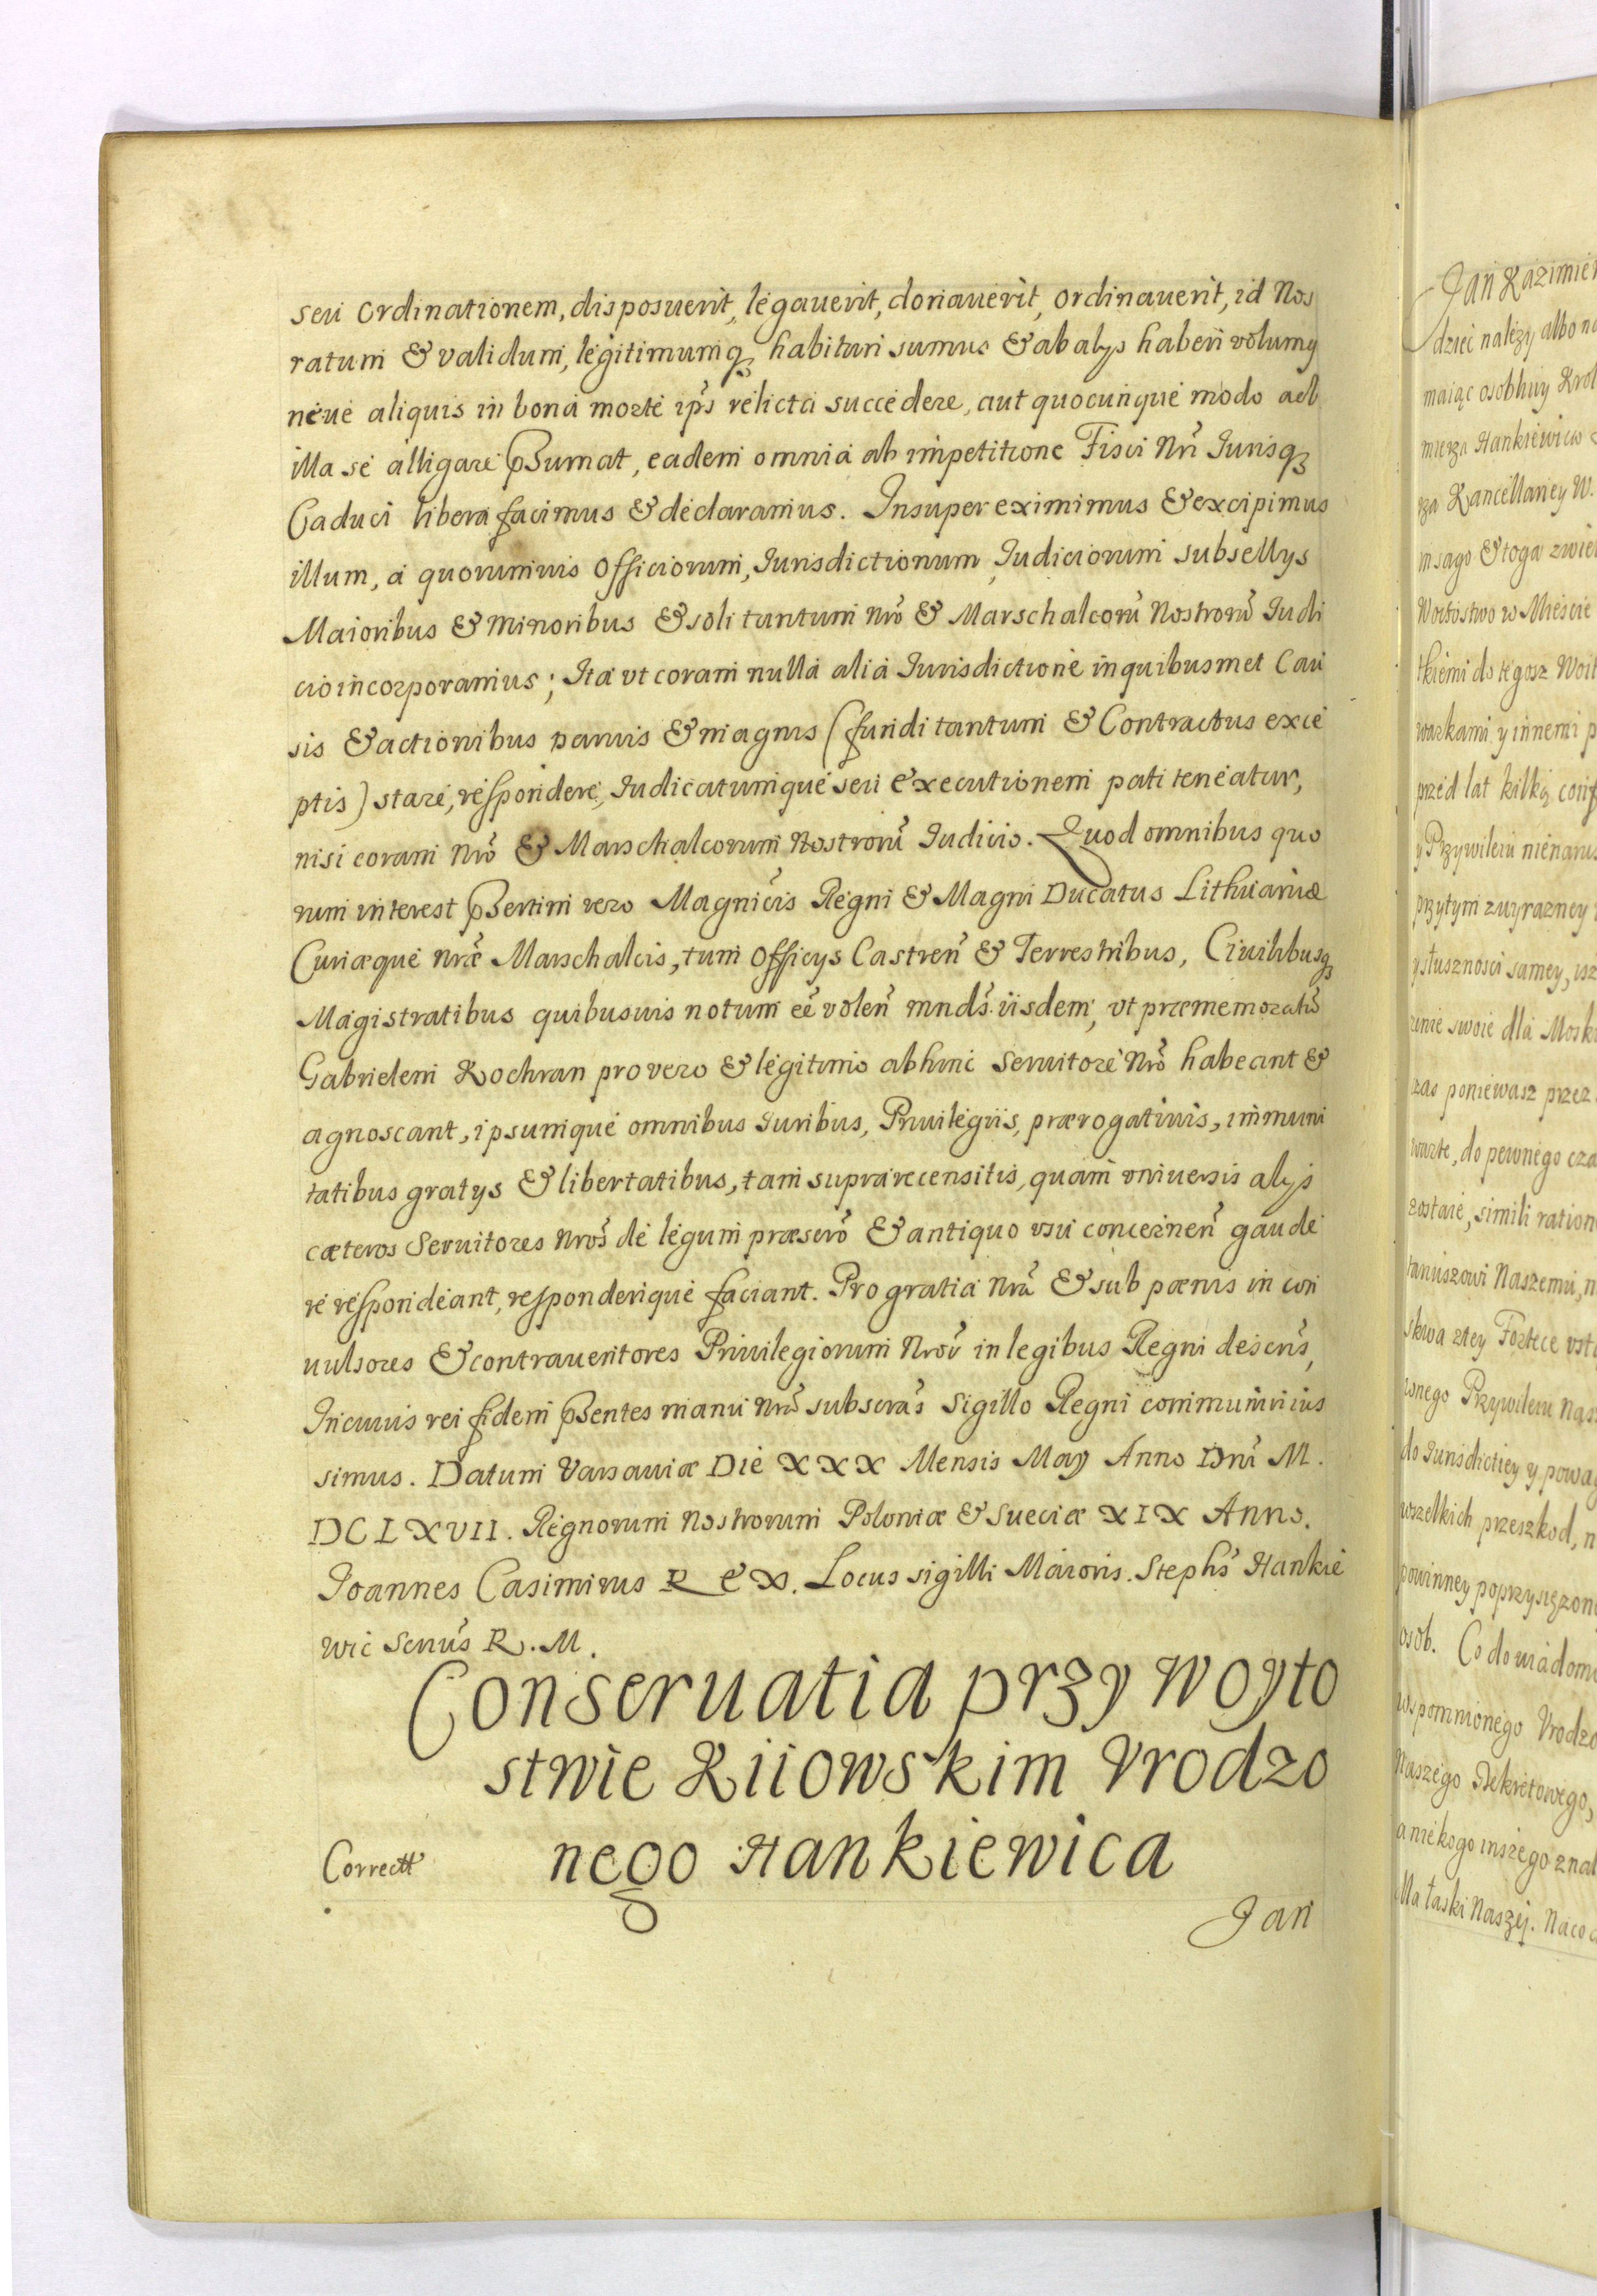 seu Ordinationem, disposuerit, legauerit, donauerit, ordinauerit, id Nos
ratum & validum, legitimumq₃ habituri sumus & ab alys haberi volumꝰ
neue aliquis in bona morte ip̃s relicta succedere, aut quocunque modo ad
illa se alligare p̃sumat, eadem omnia ab impetitione Fisci Nr̃i Iurisq₃
Caduci libera facimus & declaramus. Insuper eximimus & excipimus
illum, a quorumuis Officiorum, Iurisdictionum, Iudiciorum subsellys
Maioribus & Minoribus & soli tantum Nr̃o & Marschalcorũ Nostrorũ Iudi
cio incorporamus; Ita vt coram nulla alia Iurisdictione in quibusmet Cau
sis & actionibus paruis & magnis (fundi tantum & Contractus exce
ptis) stare, respondere, Iudicatumque seu executionem pati teneatur,
nisi coram Nr̃o & Marschalcorum Nostrorũ Iudicio. Quod omnibus quo
rum interest p̃sertim vero Magnicis̃ Regni & Magni Ducatus Lithuaniæ
Curiæque Nr̃æ Marschalcis, tum Officys Castreñ & Terrestribus, Ciuilibusq₃
Magistratibus quibusuis notum eẽ voleñ mnds̃ iisdem, vt præmemoratũ
Gabrielem Kochran pro vero & legitimo abhinc Seruitore Nr̃o habeant &
agnoscant, ipsumque omnibus Iuribus, Priuilegiis, prærogatiuis, immuni
tatibus gratys & libertatibus, tam suprarecensitis, quam vniuersis alys
cæteros Seruitores Nr̃os de legum præscrõ & antiquo vsu concerneñ gaude
re respondeant, responderique faciant. Pro gratia Nr̃a & sub pœnis in con
uulsores & contrauentores Priuilegiorum Nr̃oũ in legibus Regni descrĩs,
In cuius rei fidem p̃sentes manu Nr̃a subscrãs Sigillo Regni communiri ius
simus. Datum Varsauiæ Die XXX Mensis May Anno Dnĩ M.
DCLXVII. Regnorum Nostrorum Poloniæ & Sueciæ XIX Anno.
Joannes Casimirus Rex. Locus sigilli Maioris. Stephs̃ Hankie
wic Secrius̃ R. M.
Conseruatia przy Woyto
stwie Kiiowskim Vrodzo
nego Hankiewica
Correctt
Jan
Jan Kazimier
dzieć nalezy albo na
maiąc osobliwy Krol
mierza Hankiewica
rza Kancellaney W.
in sago & toga
Woitostwo w Miescie
tkiemi do tegosz Woit
warkami y innemi p
przed lat kilką
y Przywileiu nienarus
przytym
y słusznosci samey, isz
swoie dla Mosk
zas poniewasz przez
warte, do pewnego cza
zostaie, simili ration
Naszemu, n
skwa ztey Fortece
Przywileiu Nas
do Iurisdictiey y powa
wszelkich przeszkod, n
powinney poprzysięzon
osob. Co do wiadom
wspomnionego Vrodzo
Naszego Dekretowego,
a niekogo inszego znal
dla łaski Naszey. Na co